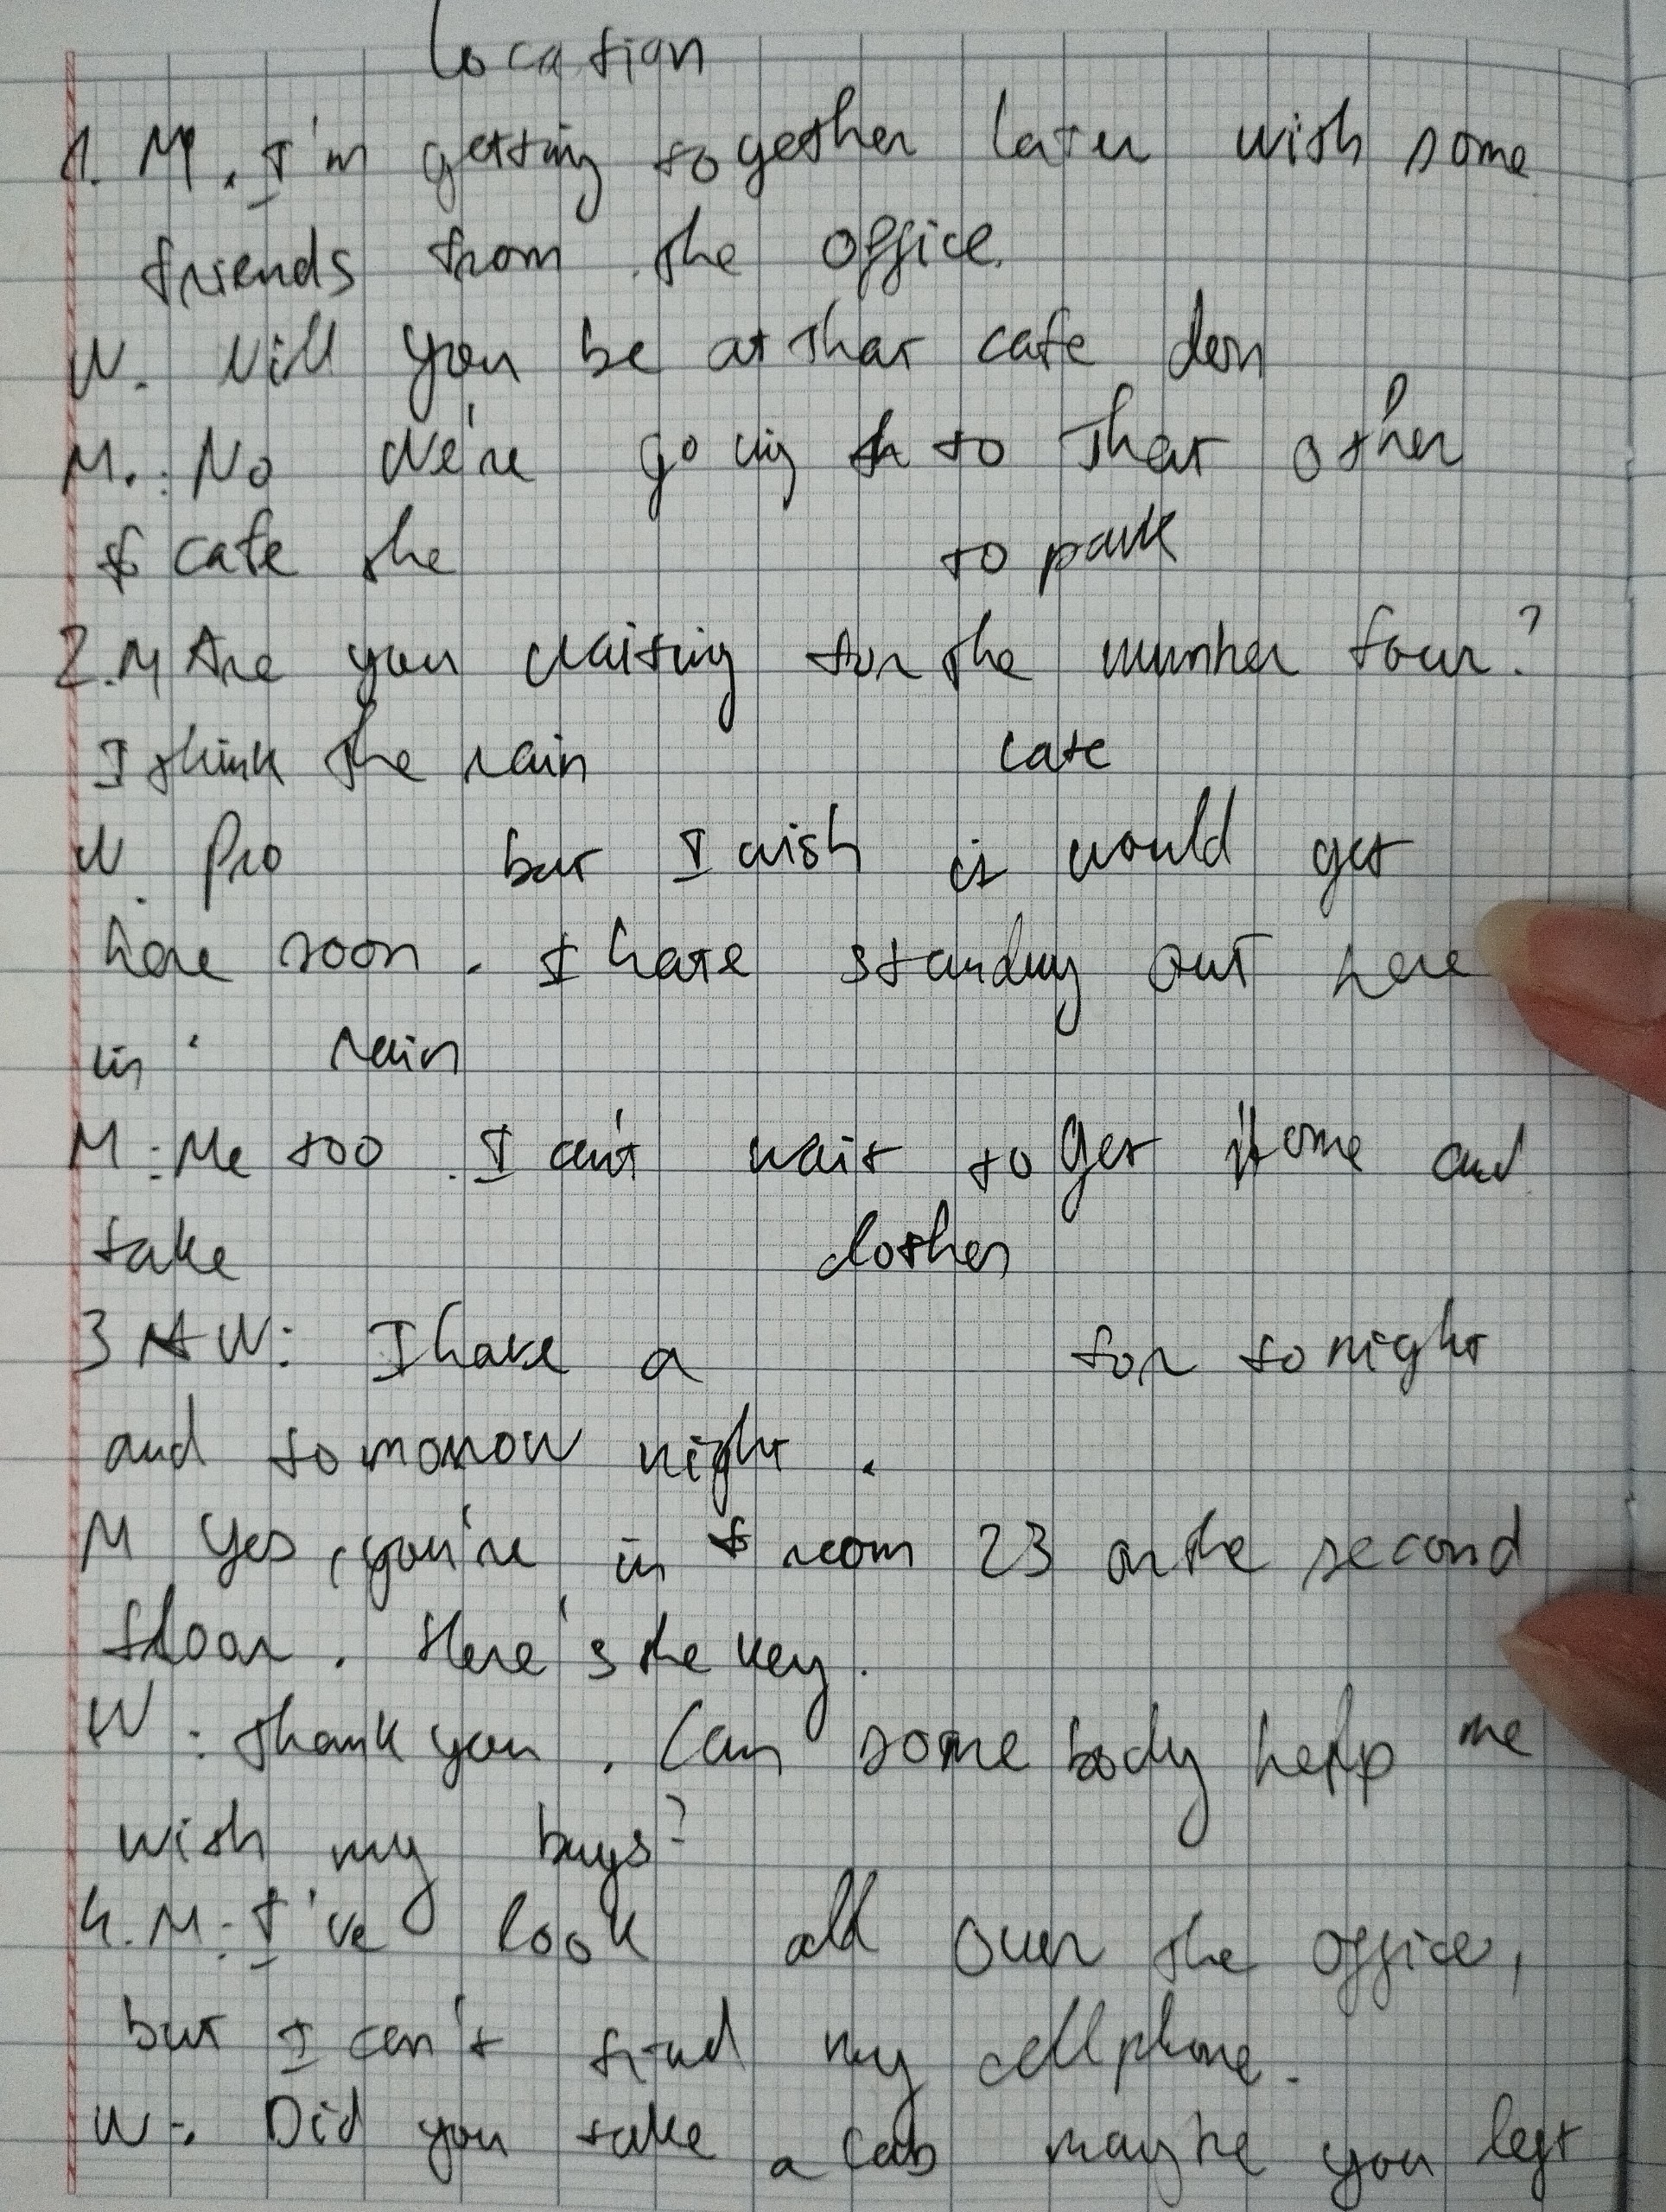 location
1. M. I'm getting together later with some
friends from the office.
W. Will you be at that cafe don
M.: No We're going to that other
cafe the to park
2. M Are you waiting for the number four?
I think the rain late
W. Pro but I wish it would get
here soon. I hate standing out here
in rain
M: Me too. I can't wait to get home and
take clothes
3 W: I have a for tonight
and tomorrow night.
M Yes, you're in room 23 on the second
floor. Here's the key.
W: Thank you. Can somebody help me
with my bags?
4. M: I've look all over the office,
but I can't find my cell phone.
W: Did you take a cab maybe you left